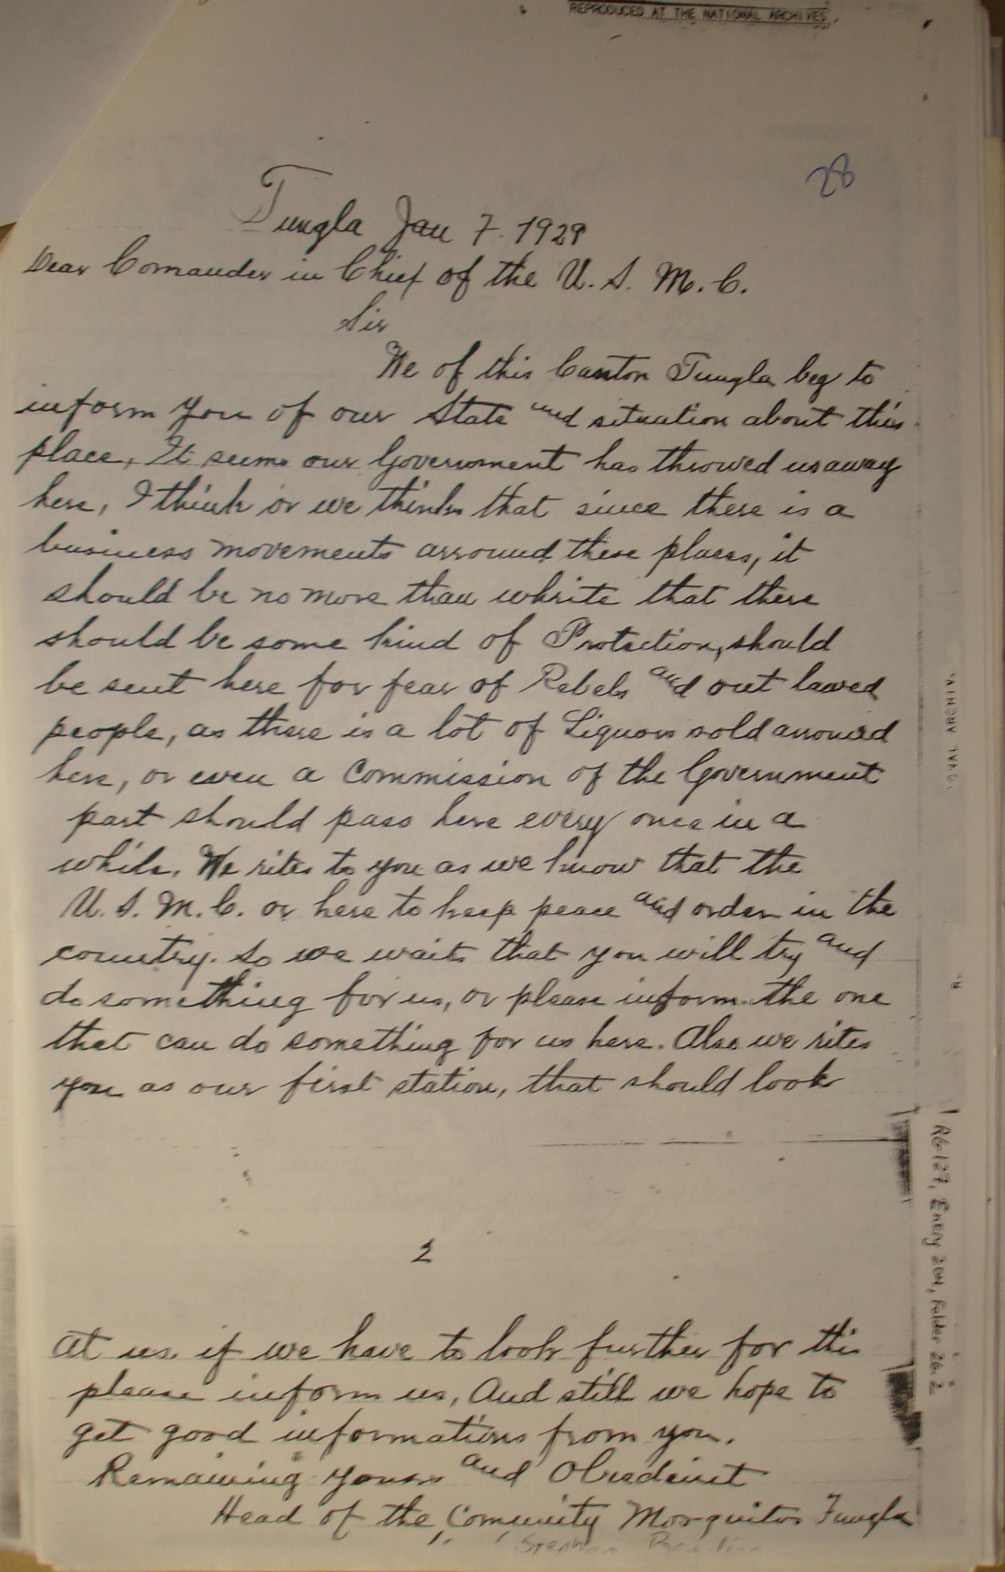 REPRODUCED AT THE NATIONAL ARCHIVES
28
Tungla Jan 7. 1929
Dear Comander in Chief of the U. S. M. C.
Sir
We of this Canton Tungla beg to
inform you of our State and situation about this
place, It seems our Government has throwed us away
here, I think or we thinks that since there is a
business movements arround these places, it
should be no more than whrite that there
should be some kind of Protection, should
be sent here for fear of Rebels and out lawed
people, as there is a lot of Liquors sold arround
here, or even a Commission of the Government
part should pass here every once in a
while. We rites to you as we know that the
U. S. M. C. or here to keep peace and order in the
country. So we waits that you will try and
do something for us, or please inform the one
that can do something for us here. Also we rites
you as our first station, that should look
2
at us. if we have to look further for this
please inform us, And still we hope to
get good informations from you.
Remaining yours and Obiedeint
Head of the Comunity Mosquitos Tungla
RG127, Entry 204, Folder 26.2